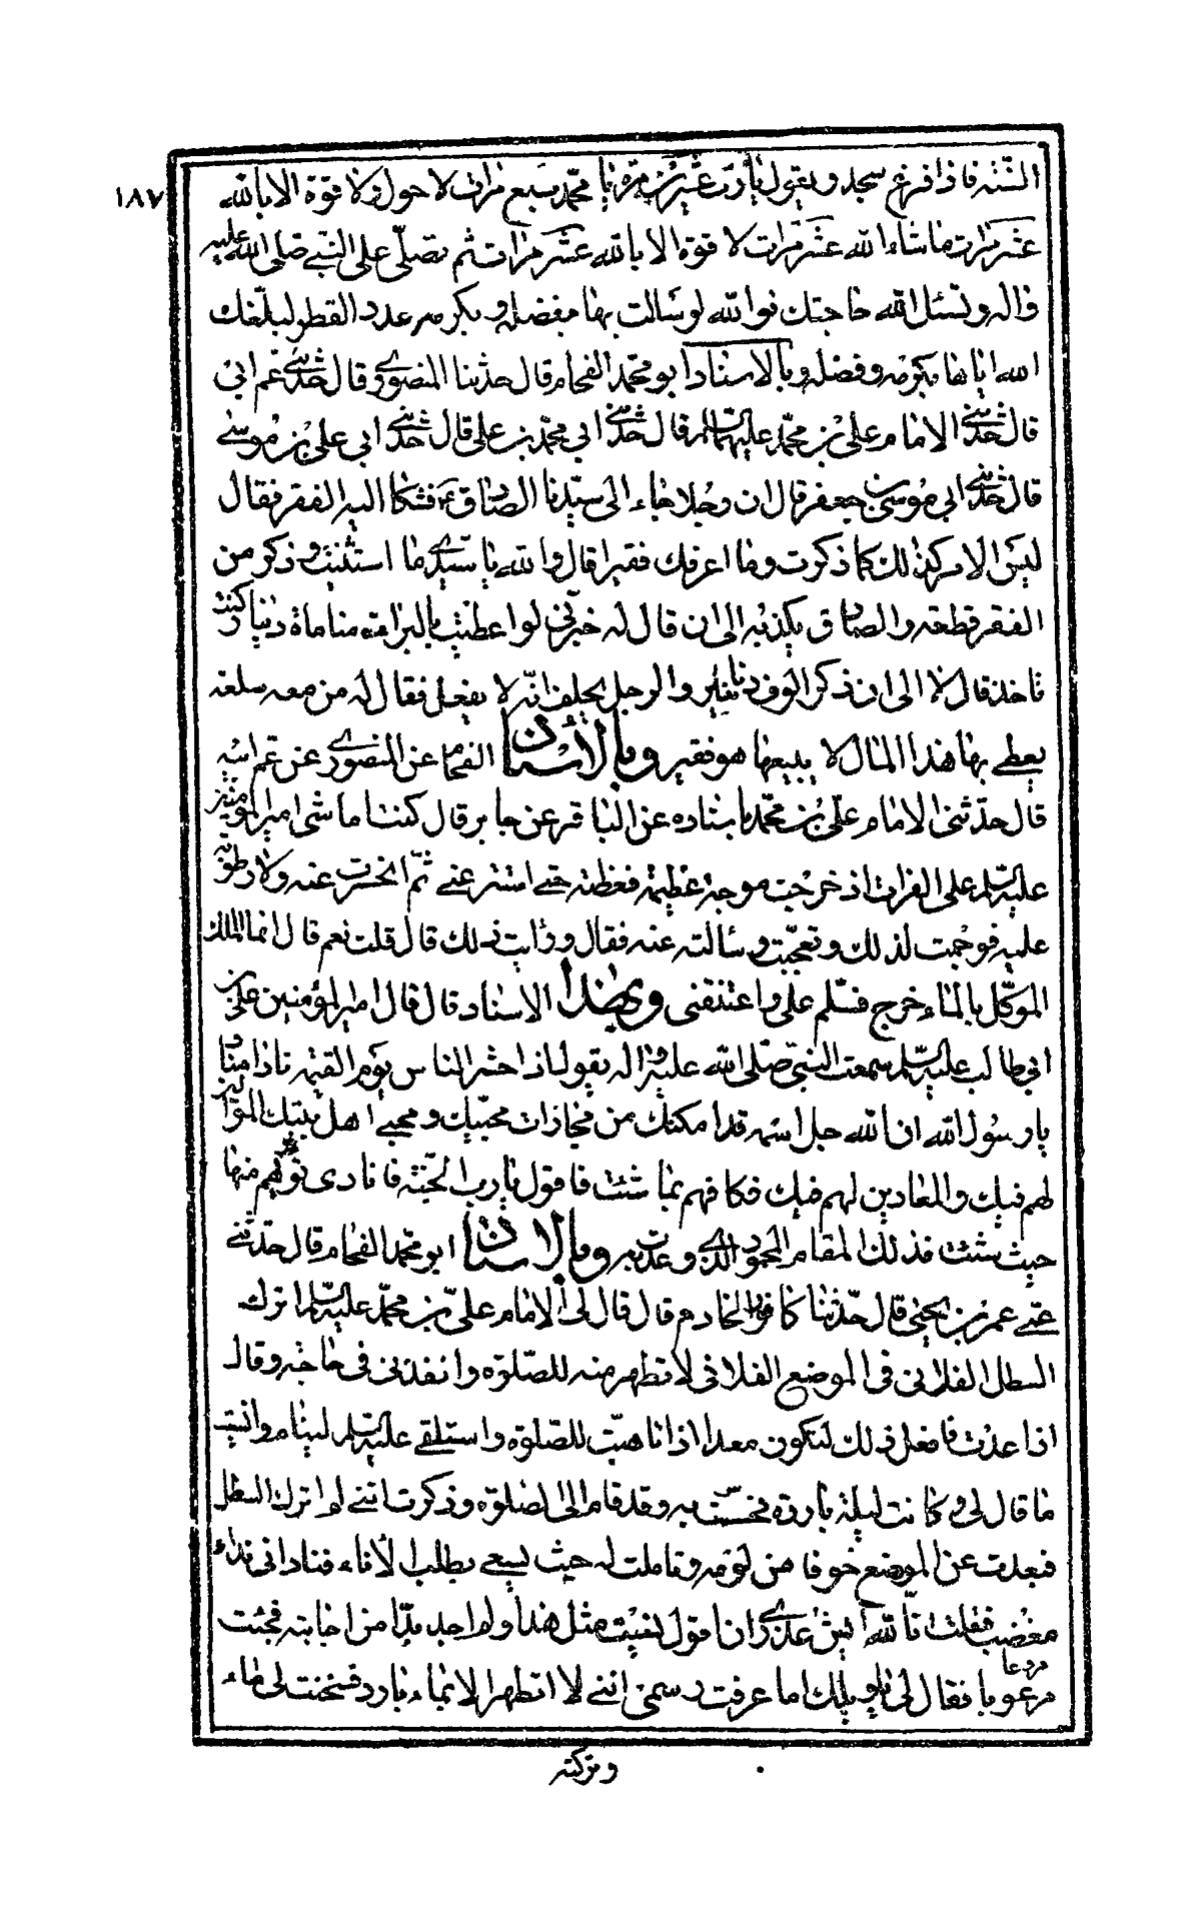 ١٨٧
السّنة فاذا فرغ سجد و يقول يا ربّ عشرين مرّة يا محمّد سبع مرات لا حول ولا قوّة الا بالله
عشر مرات ما شاء الله عشر مرات لا قوة الا بالله عشر مرات ثم تصلّى على النبى صلى الله عليه
واله وتسئل الله حاجتك فوالله لو سالت بها بفضله و بكرمه عدد القطر لبلّغك
الله اياها بكرمه وفضله وبالاسناد ابو محمد الفحام قال حدثنا المنصورى قال حدثنى عم ابى
قال حدثنى الامام على بن محمد عليهما السلم قال حدثنى ابى محمد بن على قال حدثنى ابى على بن موسى
قال حدثنى ابى موسى بن جعفر قال ان رجلا جاء الى سيدنا الصادق ع فشكا اليه الفقر فقال
ليس الامر كذلك كما ذكرت وما اعرفك فقيرا قال والله يا سيدى ما استثنيت وذكر من
الفقر قطعة والصادق يكذبه الى ان قال له خبرنى لو اعطيت بالبراءة منا ماة دينار كنت
تاخذ قال لا الى ان ذكر الوف دنانير والرجل يحلف انه لا يفعل فقال له من معه سلعة
يعطى بها هذا المال لا يبيعها هو فقير وبالاسناد الفحام عن المنصورى عن عم ابيه
قال حدّثنى الامام علىّ بن محمّد باسناده عن الباقر عن جابر قال كنت اماشى امير المؤمنين
عليه السلم على الفرات اذ خرجت موجة عظيمة فغطته حتى استتر عنى ثمّ انحسرت عنه ولا رطوبة
عليه فوجمت لذلك وتعجّبت وسالته عنه فقال ورايت ذلك قال قلت نعم قال انما الملك
الموكّل بالماء خرج فسلّم علىّ واعتنقنى وبهذا الاسناد قال قال امير المؤمنين على بن
ابى طالب عليه السلم سمعت النبى صلى الله عليه واله يقول اذا حشر الناس يوم القيمة نادا مناد
يا رسول الله ان الله جل اسمه قد امكنك من مجازات محبيك ومحبى اهل بيتك الموالين
لهم فيك والمعادين لهم فيك فكافهم بما شئت فاقول يا رب الجنّة فانادى بوّئهم منها
حيث شئت فذلك المقام المحمود الذى وعدت به وبالاسناد ابو محمد الفحام قال حدثنى
عمى عمر بن يحيى قال حدّثنا كافور الخادم قال قال لى الامام علىّ بن محمّد عليه السلم اترك
السطل الفلانى فى الموضع الفلانى لاتطهر منه للصّلوة وانفذنى فى حاجة وقال
اذا عدت فافعل ذلك ليكون معدا اذا تاهبت للصّلوة واستلقى عليه السلم لينام وانسيت
ما قال لى وكانت ليلة باردة فحسست به وقد قام الى الصلوة وذكرت اننى لم اترك السطل
فبعدت عن الموضع خوفا من لومه وتاملت له حيث يسعى بطلب الاناء فنادانى نداء
مغضب فقلت انّا لله ايش عذرى ان اقول نسيت مثل هذا ولم اجد بدّا من اجابته فجئت
مرعوبا مرعا فقال لى يا ويلك اما عرفت رسمى اننى لا اتطهر الا بماء بارد فسخنت لى ماء
وتركته